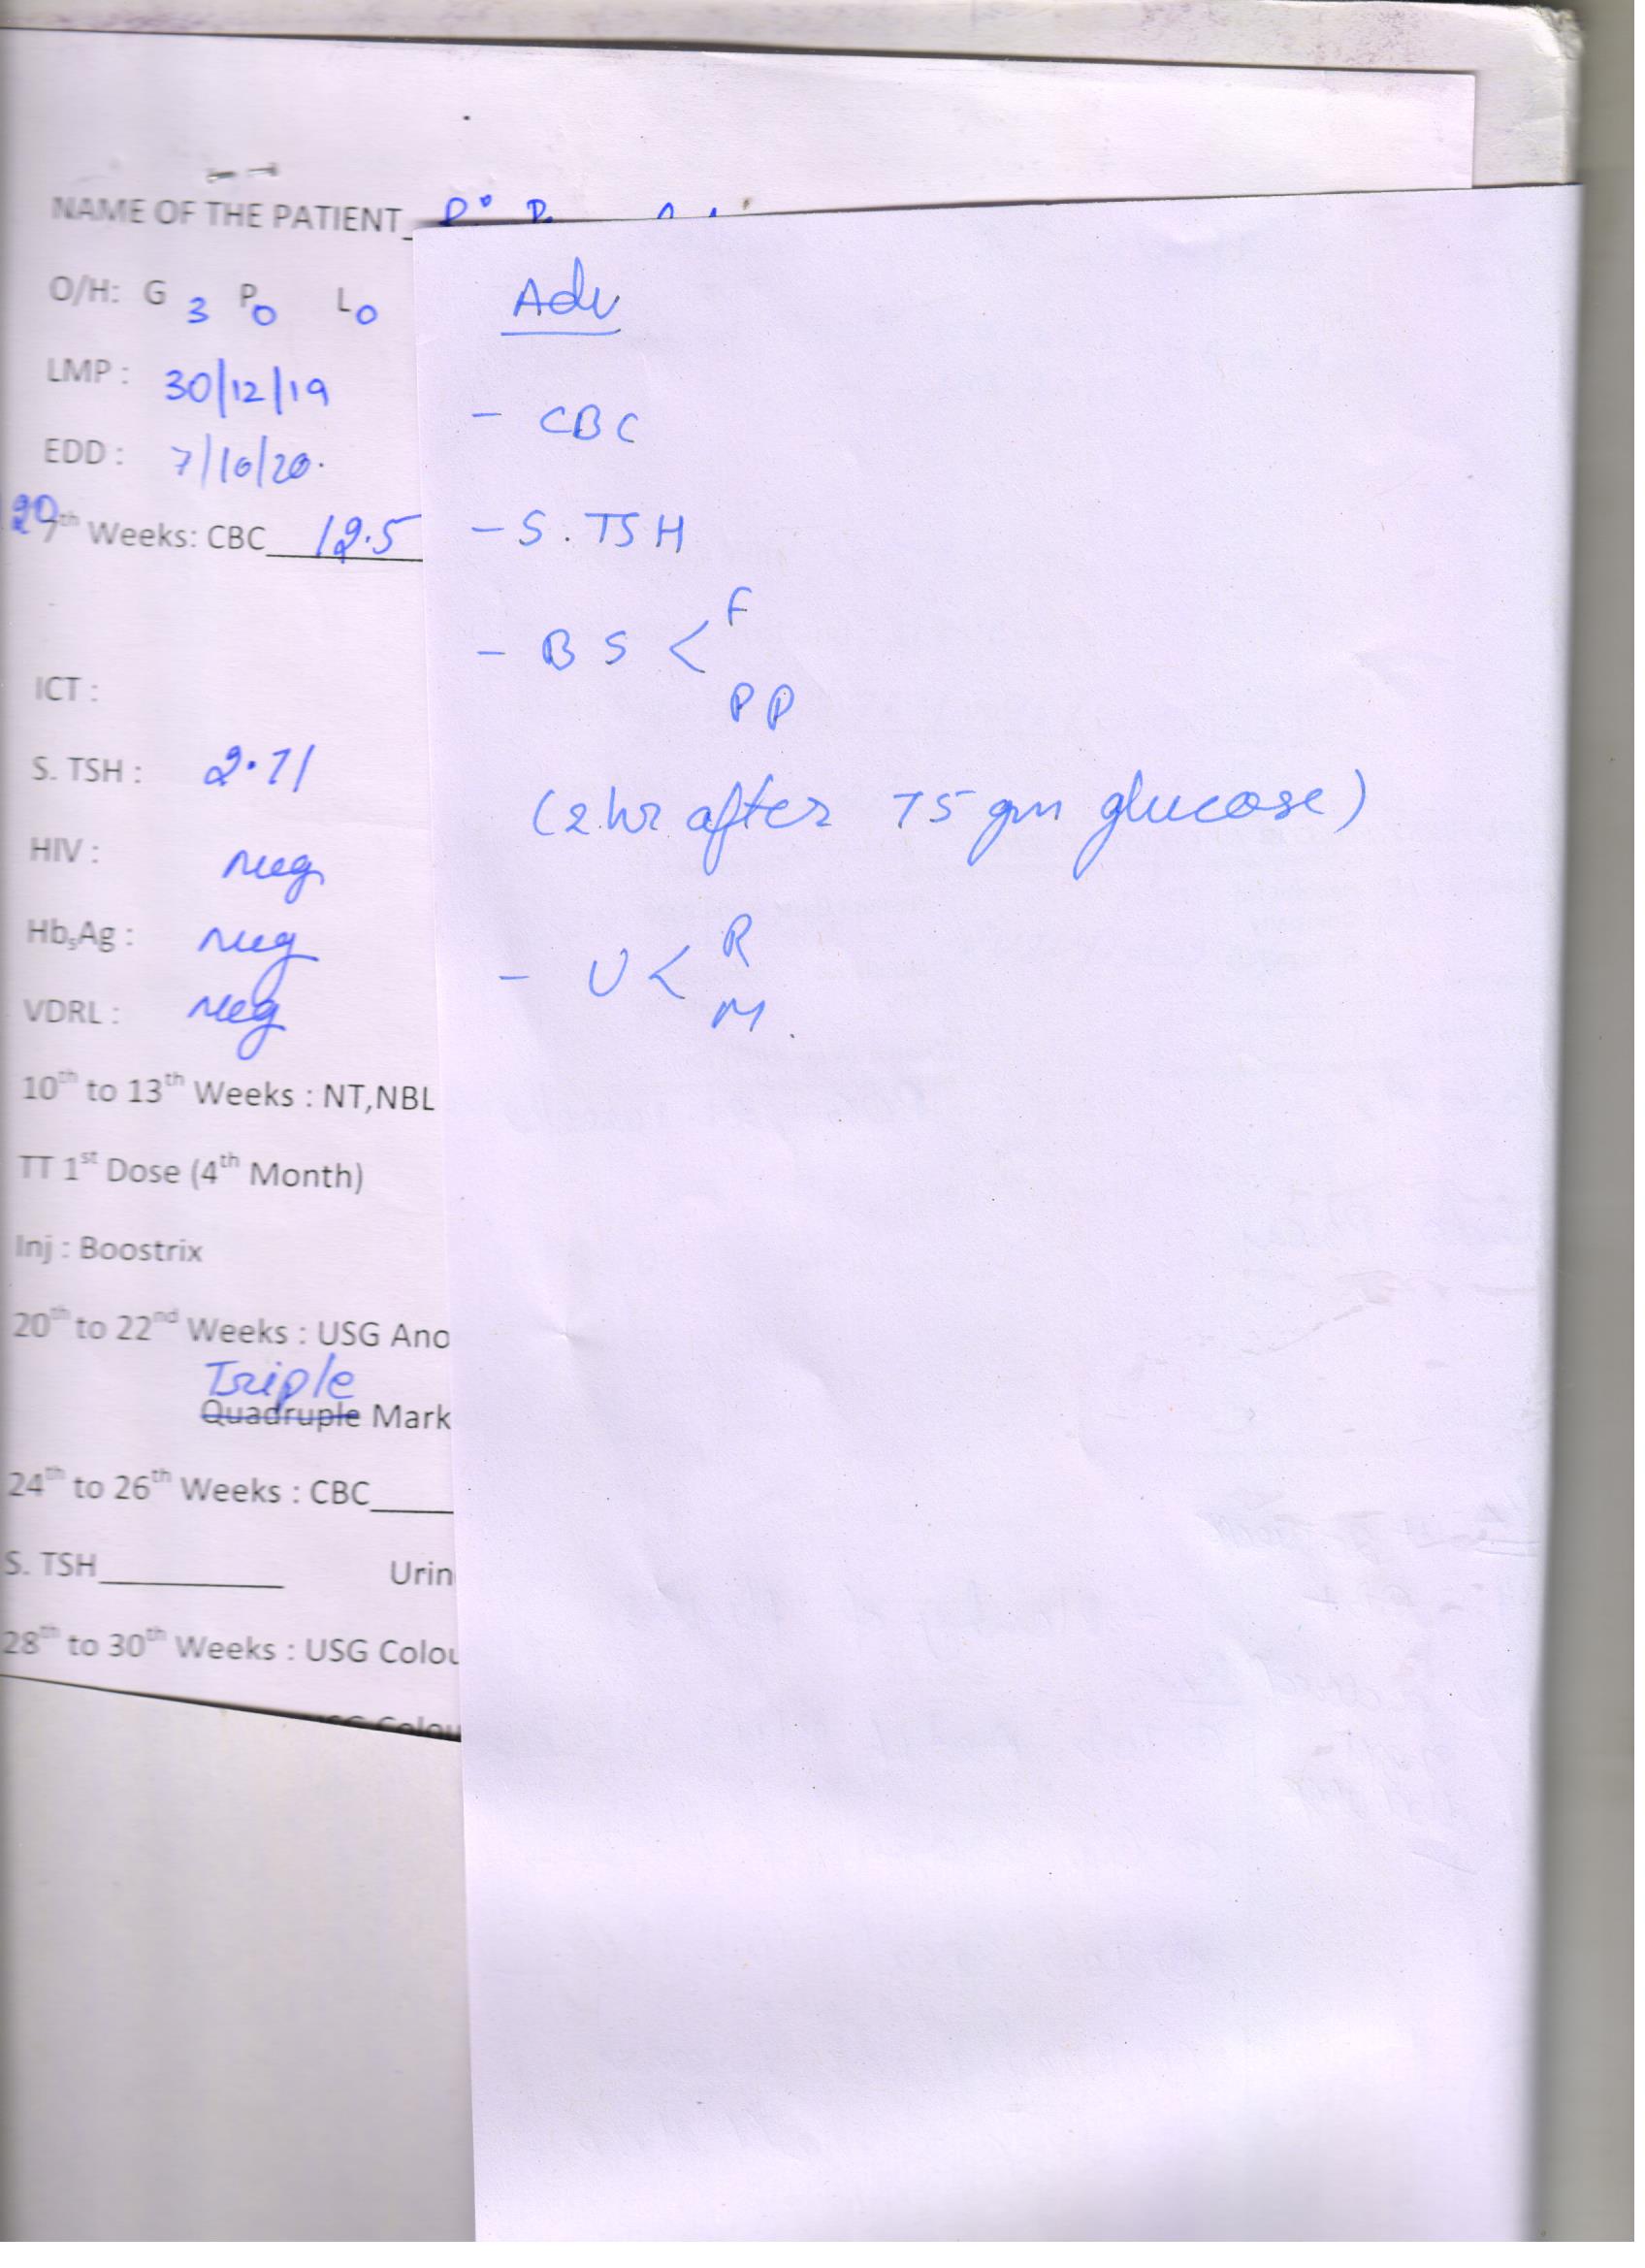 NAME OF THE PATIENT
O/H: G 3 P0 L0
LMP : 30/12/19
EDD : 7/10/20.
7th Weeks: CBC 12.5
ICT :
S. TSH : 2.71
HIV : neg
HbsAg : neg
VDRL : neg
10th to 13th Weeks : NT,NBL
TT 1st Dose (4th Month)
Inj : Boostrix
20th to 22nd Weeks : USG Ano
Triple
Quadruple Mark
24th to 26th Weeks : CBC
S. TSH Urin
28th to 30th Weeks : USG Colou
Adv
- CBC
- S. TSH
- BS < F
PP
(2 hr after 75 gm glucose)
- U < R
M